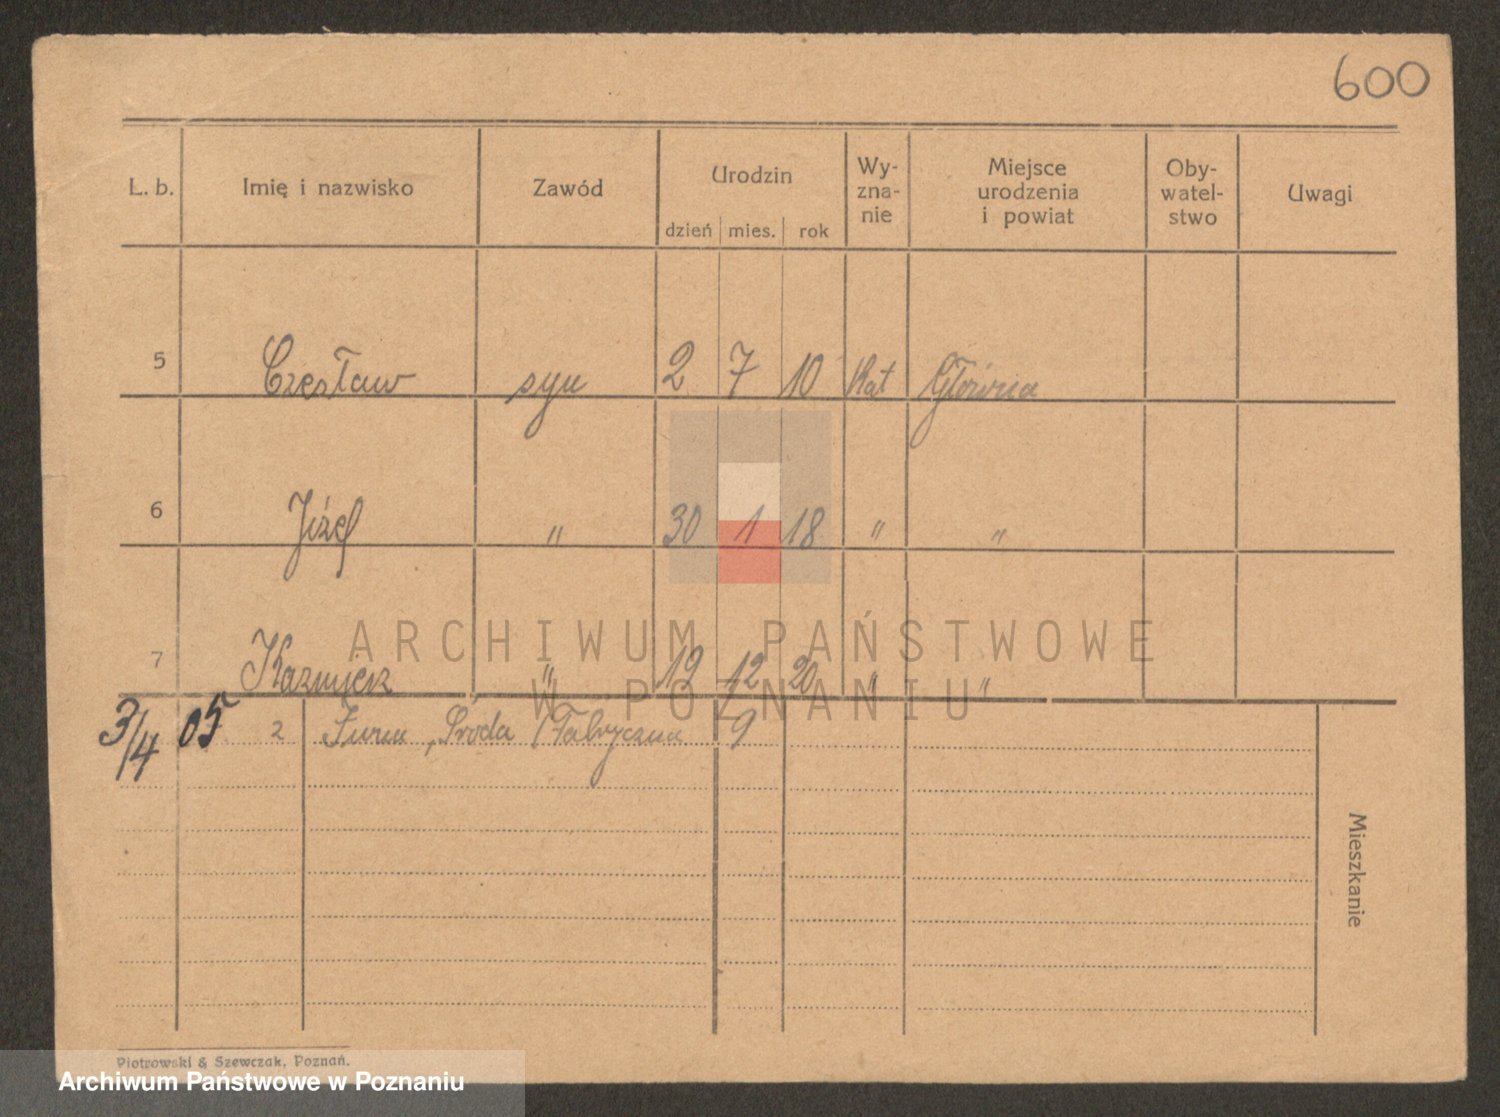 600
L. b. Imię i nazwisko Zawód Urodzin dzień mies. rok Wy-zna-nie Miejsce urodzenia i powiat Oby-watel-stwo Uwagi
5 Czesław syn 2 7 10 Kat Główna
6 Józef " 30 1 18 " "
7 Kazmierz " 19 12 20 " "
ARCHIWUM PAŃSTWOWE
W POZNANIU
3/4 05 2 Środa Fabryczna 9
Mieszkanie
Piotrowski & Szewczak, Poznań.
Archiwum Państwowe w Poznaniu